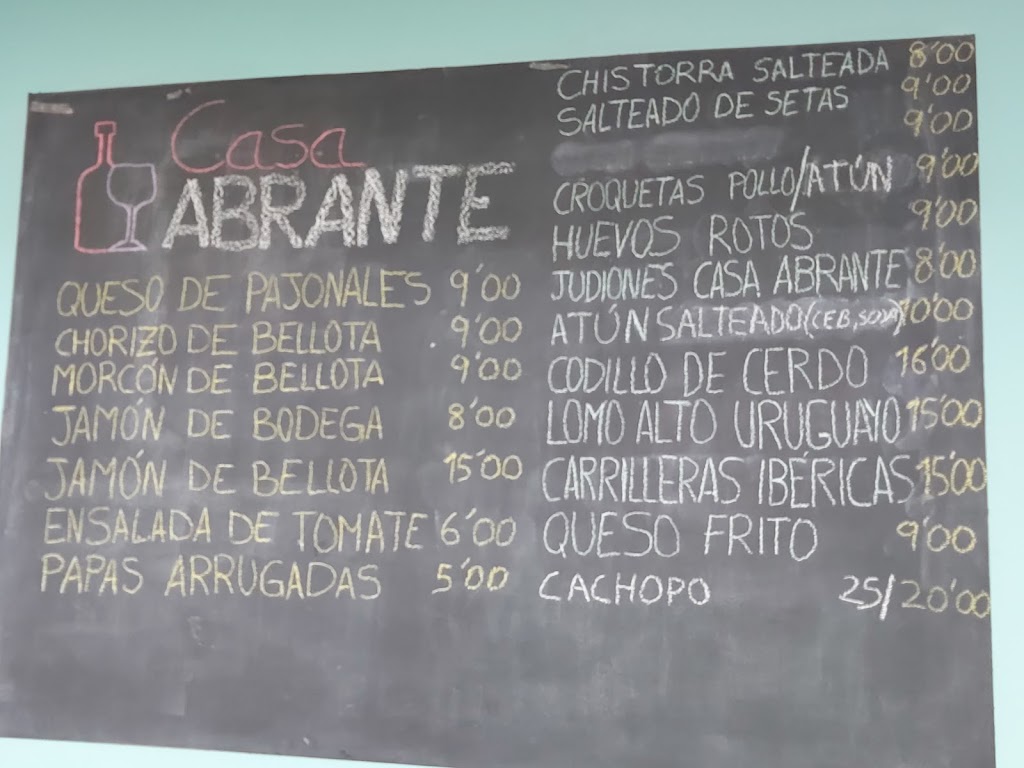 Casa
ABRANTE
QUESO DE PAJONALES 9'00
CHORIZO DE BELLOTA 9'00
MORCÓN DE BELLOTA 9'00
JAMÓN DE BODEGA 8'00
JAMÓN DE BELLOTA 15'00
ENSALADA DE TOMATE 6'00
PAPAS ARRUGADAS 5'00
CHISTORRA SALTEADA 8'00
SALTEADO DE SETAS 9'00
9'00
CROQUETAS POLLO/ATÚN 9'00
HUEVOS ROTOS 9'00
JUDIONES CASA ABRANTE 8'00
ATÚN SALTEADO (CEB, SOYA) 10'00
CODILLO DE CERDO 16'00
LOMO ALTO URUGUAYO 15'00
CARRILLERAS IBÉRICAS 15'00
QUESO FRITO 9'00
CACHOPO 25/20'00